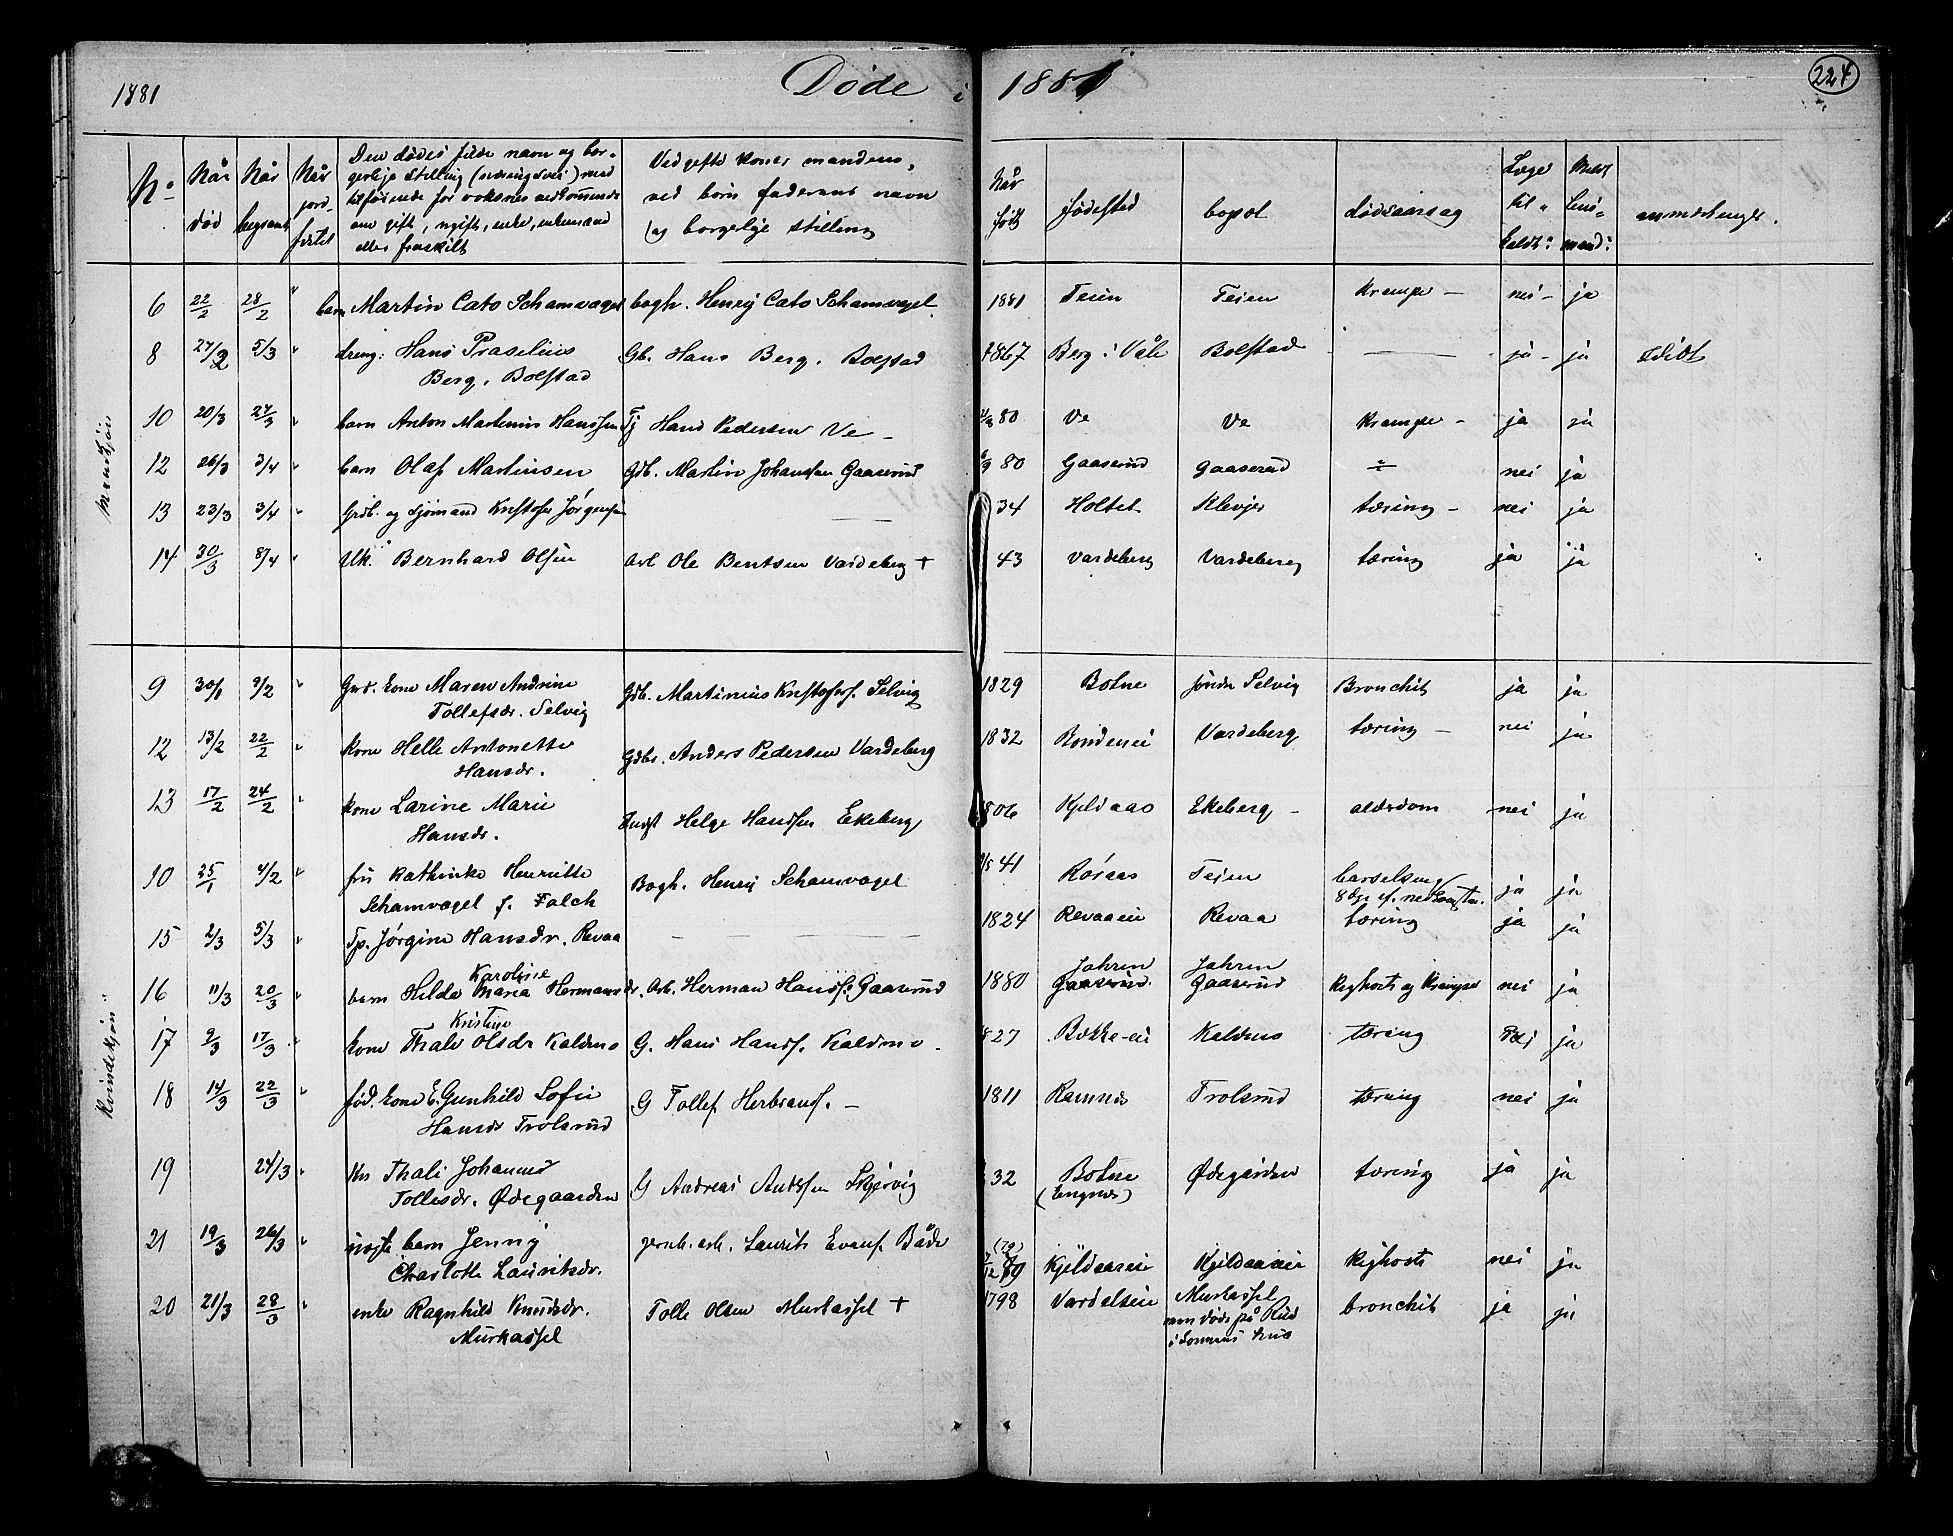 1881 Døde i 1881 224
No Når død Når begravet Når jordfæstet Den dødes fulde navn og borgerlige stilling (næringsvei) med tilføiende for voksnes vedkommende om gift, ugift, enke, enkemand eller fraskilt Ved gifte koner mandens, ved børn faderens navn og borgerlige stilling Når født fødested bopæl dødsaarsag Læge tilkaldt? anmerkninger.
Mandkjøn
6 22/2 28/2 " barn Martin Cato Schamvogel bogh. Henrij Cato Schamvogel 1881 Teien Teien Krampe - nei - ja
8 27/2 5/3 " dreng: Hans Praselius Gb. Hans Berg. Bolstad 1867 Berg i Våle Bolstad — ja - ja Idiot
Berg, Bolstad
10 20/3 27/3 " barn Anton Martinius Hanssen Tj Hans Pedersen Ve - 80 Ve Ve Krampe - ja ja
12 26/3 3/4 " barn Olaf Martinsen Gdb. Martin Johansen Gaaserud 80 Gaaserud Gaaserud " nei ja
13 23/3 3/4 " Grdb. og Sjømand Kristofer Jørgensen — 34 Holtet Klevjer tæring - nei ja
14 30/3 8/4 " Uk. Bernhard Olsen Arb Ole Bentsen Vardeberg + 43 Vardeberg Vardeberg tæring ja ja
Kvindekjøn
9 30/1 9/2 " Grd. kone Maren Andrine Gdb. Martinius Kristofers. Selvig 1829 Botne søndre Selvig Bronchit ja ja
Tollefsdr. Selvig
12 13/2 22/2 " kone Helle Antonette Gdbr. Anders Pedersen Vardeberg 1832 Bondenei Vardeberg tæring - nei ja
Hansdr.
13 17/2 24/2 " kone Larine Marie Helge Hansen Ekeberg 1806 Kjeldaas Ekeberg - alderdom nei ja
Hansdr.
10 25/1 4/2 " fru Kathinke Henriette Bogh. Henrij Schamvogel 41 Røraas Teien barselseng ja ja
Schamvogel f. Falck
15 2/3 5/3 " Tj. Jørgine Hansdr. Revaa — 1824 Revaaeie Revaa tæring ja ja
Karoline Jahren Jahren
16 11/3 20/3 barn Hilda Maria Hermansdr. Arb. Herman Hans. Gaaserud 1880 Gaaserud. Gaaserud Kighoste og Krampe nei ja
Kristine
17 9/3 17/3 " kone Thale Olsdr Kaldmo G. Hans Hans. Kaldmo. 27 Bakke-eie Kaldmo tæring nei ja
18 14/3 22/3 " fød. kone E. Gunhild Sofie G Tollef Herbrands. - 1811 Ramnes Trolsrud tæring nei ja
Hansdr Trolsrud
19 24/3 " Kn Thale Johanne G Andreas Anders Skjervig 32 Botne Ødegården tæring ja ja
Tollefsdr. Ødegaarden (Engnes)
21 19/3 26/3 " uægte barn Jenny jernb. arb. Laurits Evens. Både (79) 7/12 Kjeldaaseie Kjeldaaseie Kighoste nei ja
Charlotte Lauritsdr.
20 21/3 28/3 " enke Ragnhild Knudsdr. Tolle Olsen Murkassel + 1798 Vardalseie Murkassel bronchit ja ja
Murkassel men døde på Rud
i Sønnens hus